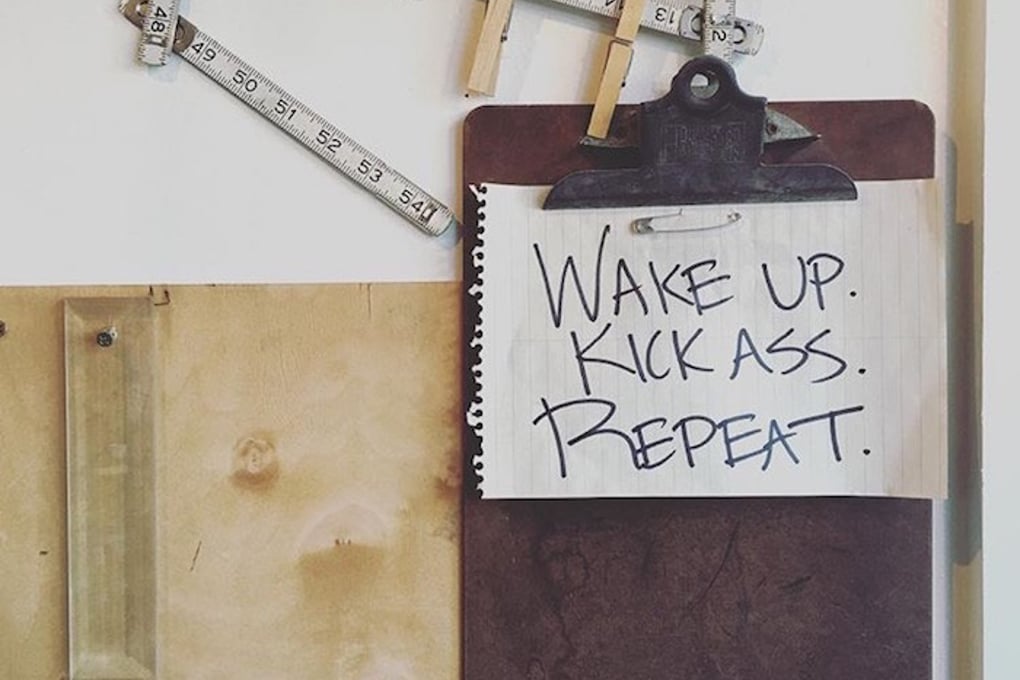 48
49 50 51 52 53 54
13
2
WAKE UP.
KICK ASS.
REPEAT.